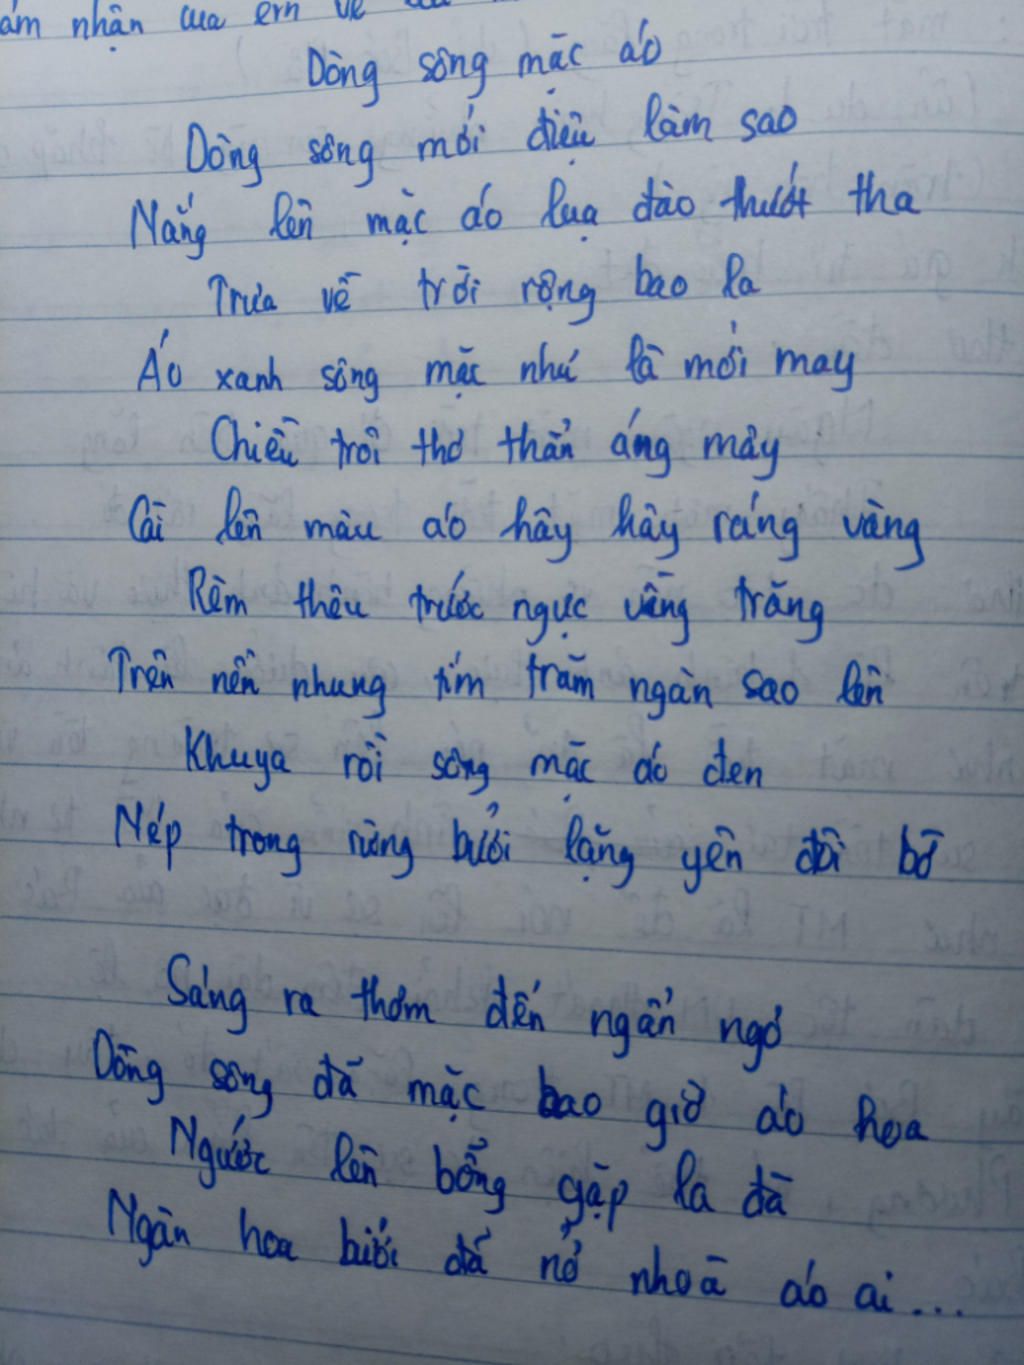 ảm nhận của em về
Dòng sông mặc áo
Dòng sông mới điệu làm sao
Nắng lên mặc áo lụa đào thướt tha
Trưa về trời rộng bao la
Áo xanh sông mặc như là mới may
Chiều trôi thơ thẩn áng mây
Cài lên màu áo hây hây ráng vàng
Rèm thêu trước ngực vầng trăng
Trên nền nhung tím trăm ngàn sao lên
Khuya rồi sông mặc áo đen
Nép trong rừng bưởi lặng yên đôi bờ
Sáng ra thơm đến ngẩn ngơ
Dòng sông đã mặc bao giờ áo hoa
Ngước lên bỗng gặp la đà
Ngàn hoa bưởi đã nở nhoà áo ai...